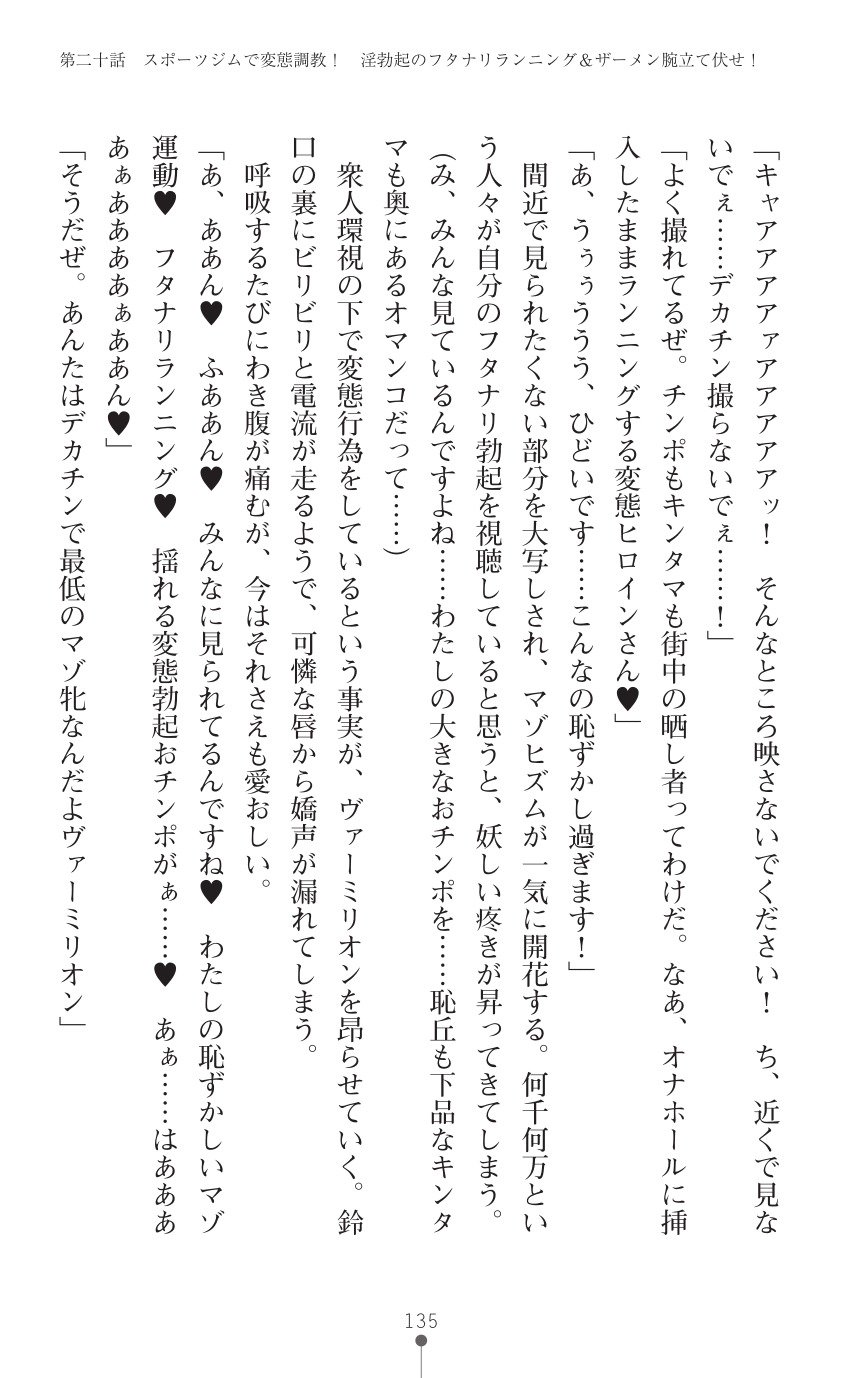 第二十話　スポーツジムで変態調教！　淫勃起のフタナリランニング＆ザーメン腕立て伏せ！
「キャアアアァアアアアアッ！　そんなところ映さないでください！　ち、近くで見な
いでぇ……デカチン撮らないでぇ……！」
「よく撮れてるぜ。チンポもキンタマも街中の晒し者ってわけだ。なあ、オナホールに挿
入したままランニングする変態ヒロインさん♥」
「あ、うぅぅううう、ひどいです……こんなの恥ずかし過ぎます！」
　間近で見られたくない部分を大写しされ、マゾヒズムが一気に開花する。何千何万とい
う人々が自分のフタナリ勃起を視聴していると思うと、妖しい疼きが昇ってきてしまう。
（み、みんな見ているんですよね……わたしの大きなおチンポを……恥丘も下品なキンタ
マも奥にあるオマンコだって……）
　衆人環視の下で変態行為をしているという事実が、ヴァーミリオンを昂らせていく。鈴
口の裏にビリビリと電流が走るようで、可憐な唇から嬌声が漏れてしまう。
　呼吸するたびにわき腹が痛むが、今はそれさえも愛おしい。
「あ、ああん♥　ふああん♥　みんなに見られてるんですね♥　わたしの恥ずかしいマゾ
運動♥　フタナリランニング♥　揺れる変態勃起おチンポがぁ……♥　あぁ……はあああ
あぁああああぁああん♥」
「そうだぜ。あんたはデカチンで最低のマゾ牝なんだよヴァーミリオン」
135